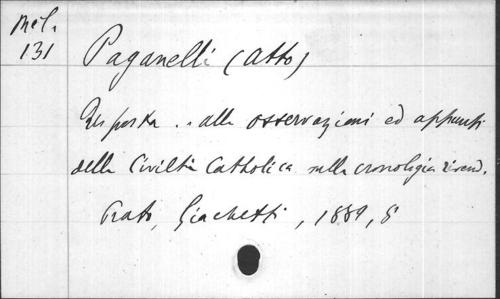 Mel.
131
Paganelli (Atto)
Risposta .. alle osservazioni ed appunti
della Civiltà Catholica sulla cronologia rivend.
Prato, Giachetti, 1889, 8